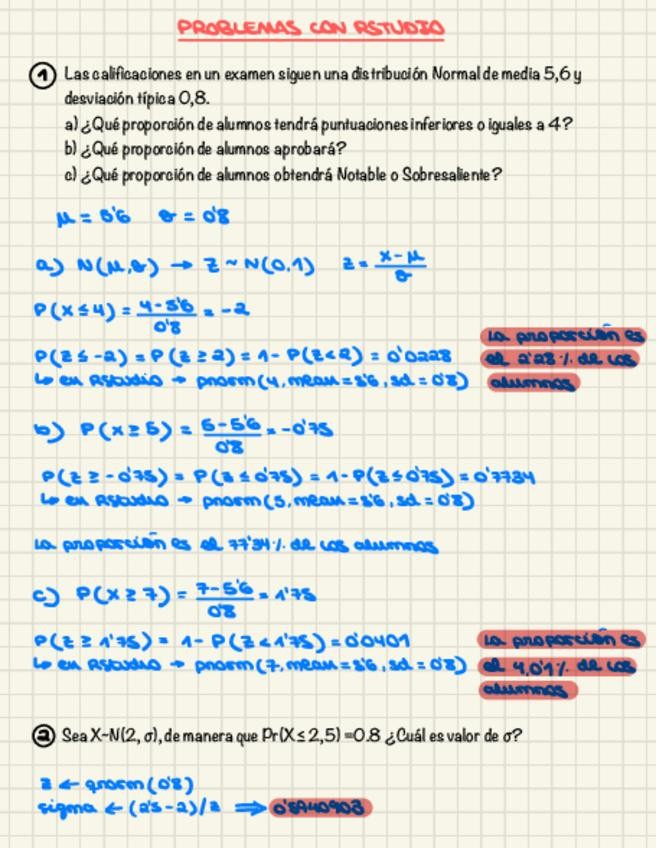 PROBLEMAS CON RSTUDIO
1 Las calificaciones en un examen siguen una distribución Normal de media 5,6 y
desviación típica 0,8.
a) ¿Qué proporción de alumnos tendrá puntuaciones inferiores o iguales a 4?
b) ¿Qué proporción de alumnos aprobará?
c) ¿Qué proporción de alumnos obtendrá Notable o Sobresaliente?
μ = 5'6 σ = 0'8
a) N(μ,σ) → Z ~ N(0,1) z = (x-μ)/σ
P(x ≤ 4) = (4-5'6)/0'8 = -2
P(z ≤ -2) = P(z ≥ 2) = 1 - P(z < 2) = 0'0228
↳ en RStudio → pnorm(4, mean = 5'6, sd = 0'8)
La proporción es
el 2'28 % de los
alumnos
b) P(x ≥ 5) = (5-5'6)/0'8 = -0'75
P(z ≥ -0'75) = P(z ≤ 0'75) = 1 - P(z ≤ 0'75) = 0'7734
↳ en RStudio → pnorm(5, mean = 5'6, sd = 0'8)
La proporción es el 77'34 % de los alumnos
c) P(x ≥ 7) = (7-5'6)/0'8 = 1'75
P(z ≥ 1'75) = 1 - P(z < 1'75) = 0'0401
↳ en RStudio → pnorm(7, mean = 5'6, sd = 0'8)
La proporción es
el 4,01 % de los
alumnos
2 Sea X~N(2, σ), de manera que Pr(X ≤ 2,5) =0.8 ¿Cuál es valor de σ?
z ← qnorm(0'8)
sigma ← (2'5 - 2)/z ⇒ 0'5940903